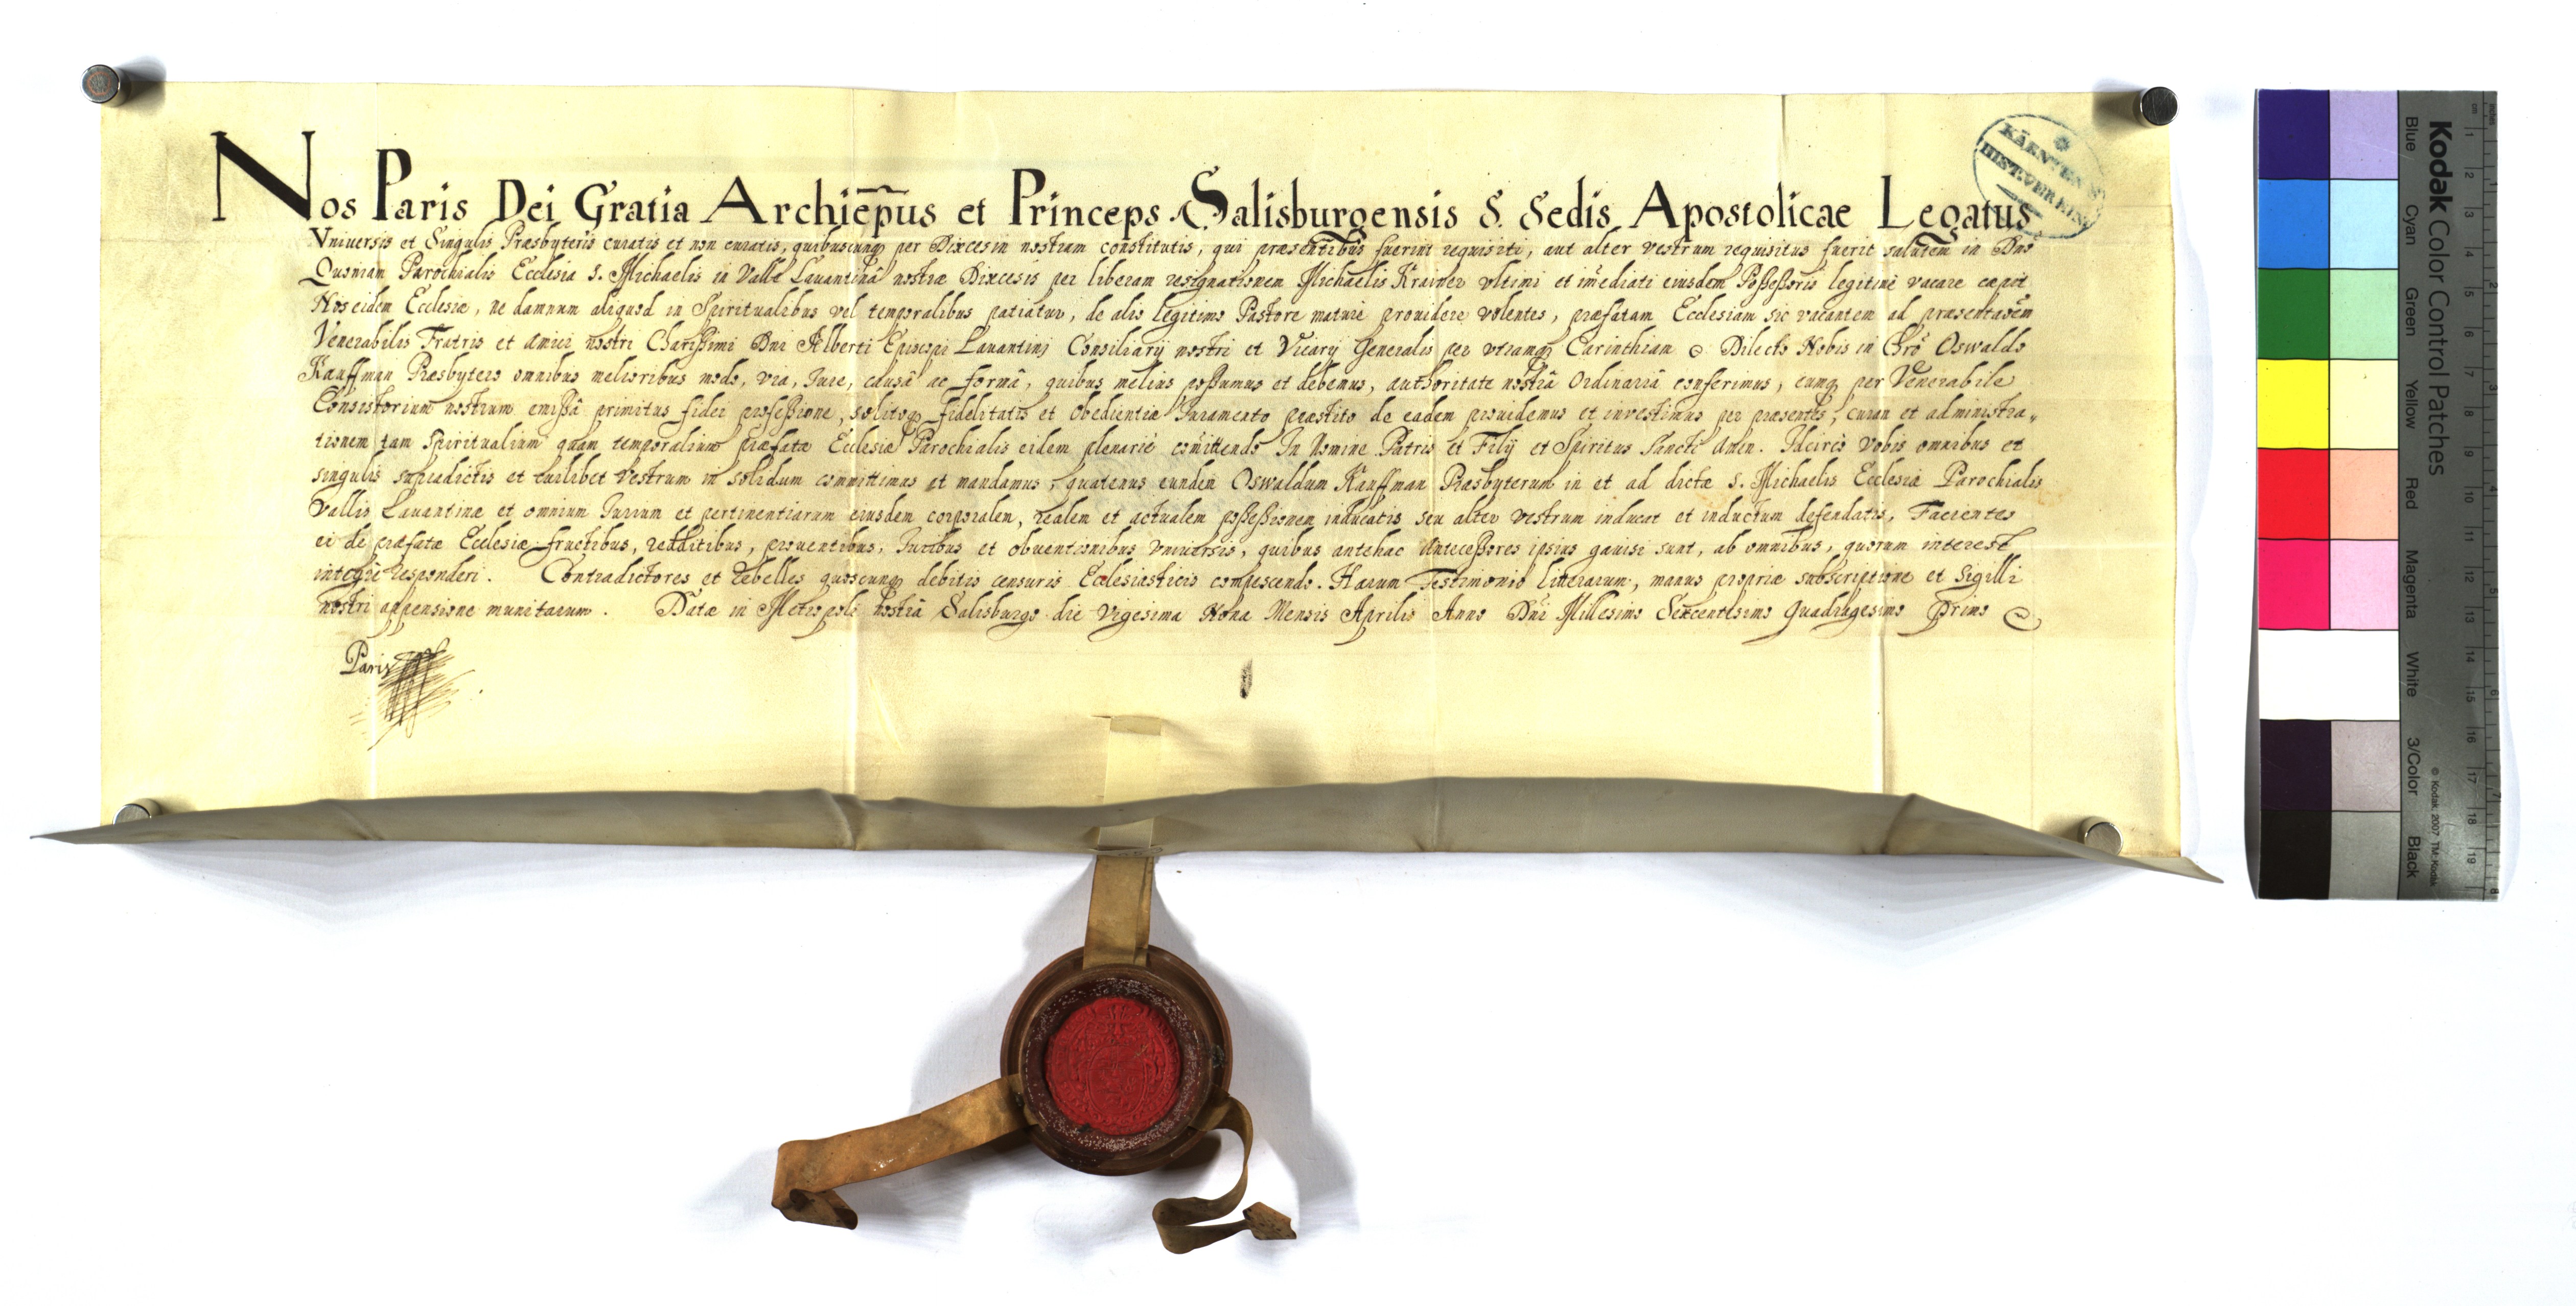 Nos Paris Dei Gratia Archiep̄us et Princeps Salisburgensis S. Sedis Apostolicae Legatus
Vniversis et Singulis Præsbyteris curatis et non curatis, quibuscunq per Diœcesin nostram constitutis, qui præsentibus fuerint requisiti, aut alter vestrum requisitus fuerit salutem in Dno
Quoniam Parochialis Ecclesia S. Michaelis in Valle Lauantinâ nostræ Diœcesis per liberam resignationem Michaelis Krainer vltimi et im̄ediati eiusdem Possessoris legitimè vacare cœpit
Nos eidem Ecclesiæ, ne damnum aliquod in Spiritualibus vel temporalibus patiatur, de alio legitimo Pastore maturè prouidere volentes, præfatam Ecclesiam sic vacantem ad præsentaōem
Venerabilis Fratris et amici nostri Charissimi Dni Alberti Episcopi Lauantini Consiliarij nostri et Vicarij Generalis per vtramq Carinthiam Dilecto Nobis in Chrō Oswaldo
Kauffman Præsbytero omnibus melioribus modo, via, Iure, causâ ac formâ, quibus melius possumus et debemus, authoritate nostrâ Ordinariâ conferimus, eumq per Venerabile
Consistorium nostrum emissâ primitus fidei professione, solitoq fidelitatis et obedientiæ Iuramento præstito de eadem prouidemus et inuestimus per præsentes, curam et administra„
tionem tam Spiritualium quam temporalium præfatæ Ecclesiæ Parochialis eidem plenariè com̄ittendo In Nomine Patris et Filij et Spiritus Sancti Amen. Idcircò Vobis omnibus et
singulis supradictis et cuilibet Vestrum in solidum committimus et mandamus, quatenus eunden̄ Oswaldum Kauffman Præsbyterum in et ad dictæ S. Michaelis Ecclesiæ Parochialis
Vallis Lauantinæ et omnium Iurium et pertinentiarum eiusdem corporalem, realem et actualem possessionem inducatis seu alter vestrum inducat et inductum defendatis, Facientes
ei de præfatæ Ecclesiæ fructibus, redditibus, prouentibus, Iuribus et obuentionibus vniuersis, quibus antehac Antecessores ipsius gauisi sunt, ab omnibus, quorum interest
integrè responderi. Contradictores et rebelles quoscunq debitis censuris Ecclesiasticis compescendo. Harum Testimonio litterarum, manus propriæ subscriptione et Sigilli
nostri appensione munitarum. Datæ in Metropoli nostrâ Salisburgo die Vigesima Nona Mensis Aprilis Anno Dn̄i Millesimo Sexcentesimo Quadragesimo Primo
Paris
KÄRNTEN
HIST. VEREIN
Kodak Color Control Patches
© Kodak, 2007 TM: Kodak
Blue Cyan Green Yellow Red Magenta White 3/Color Black
cm 1 2 3 4 5 6 7 8 9 10 11 12 13 14 15 16 17 18 19
inches 1 2 3 4 5 6 7 8